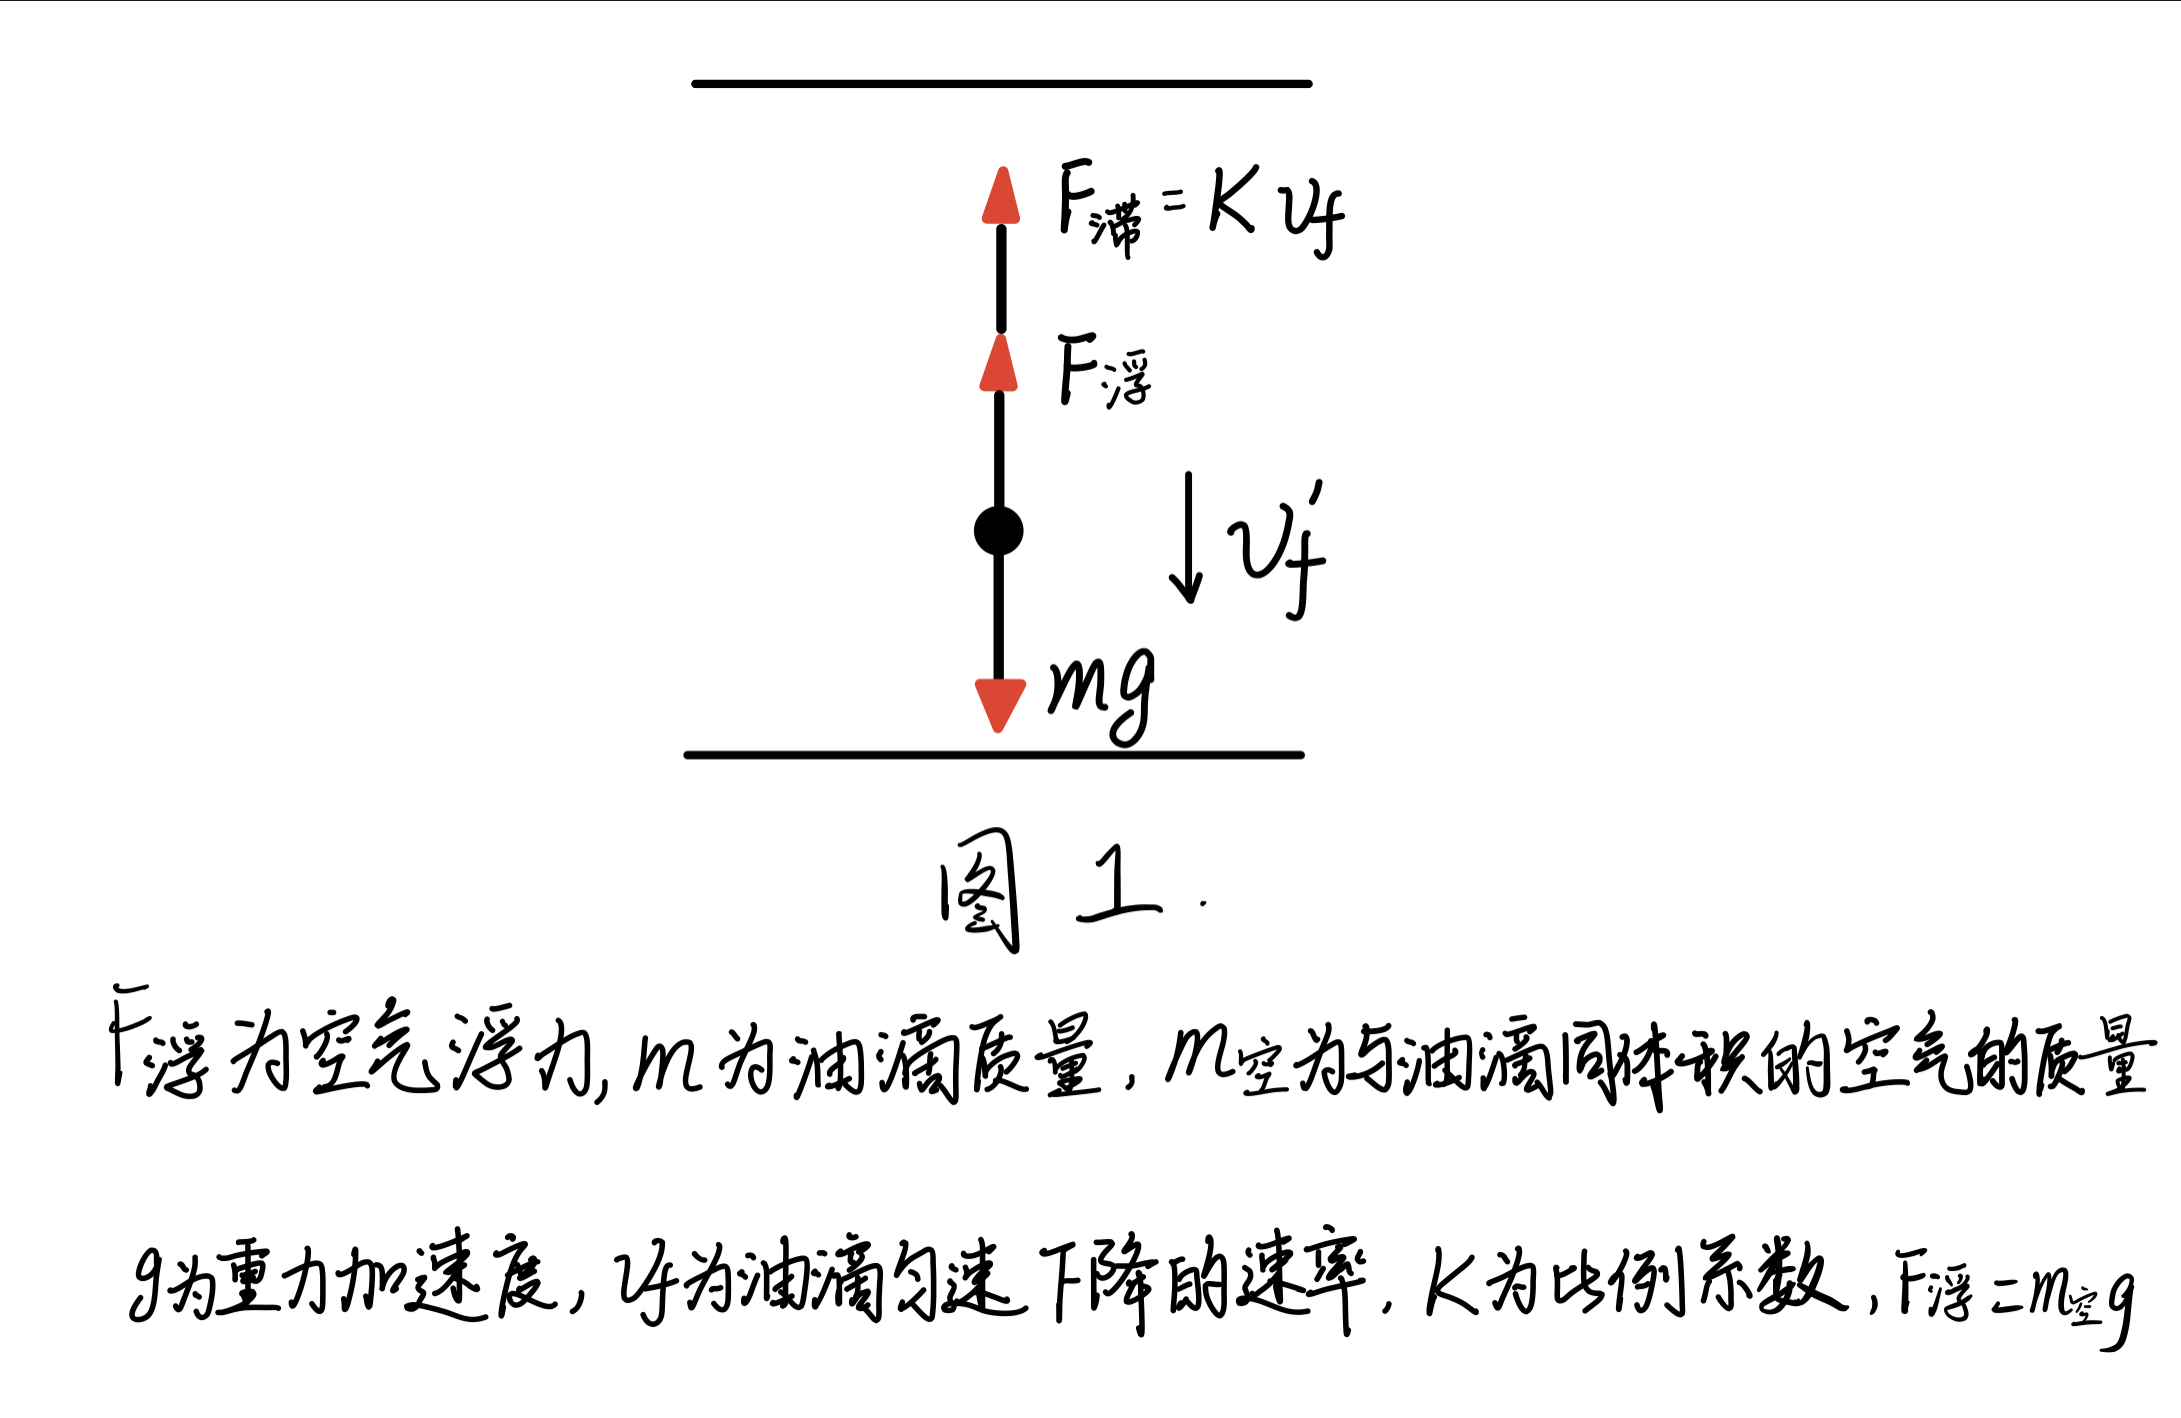 F滞 = K υf
F浮
υf′
mg
图 1.
F浮为空气浮力, m为油滴质量, m空为与油滴同体积的空气的质量
g为重力加速度, υf为油滴匀速下降的速率, K为比例系数, F浮=m空g